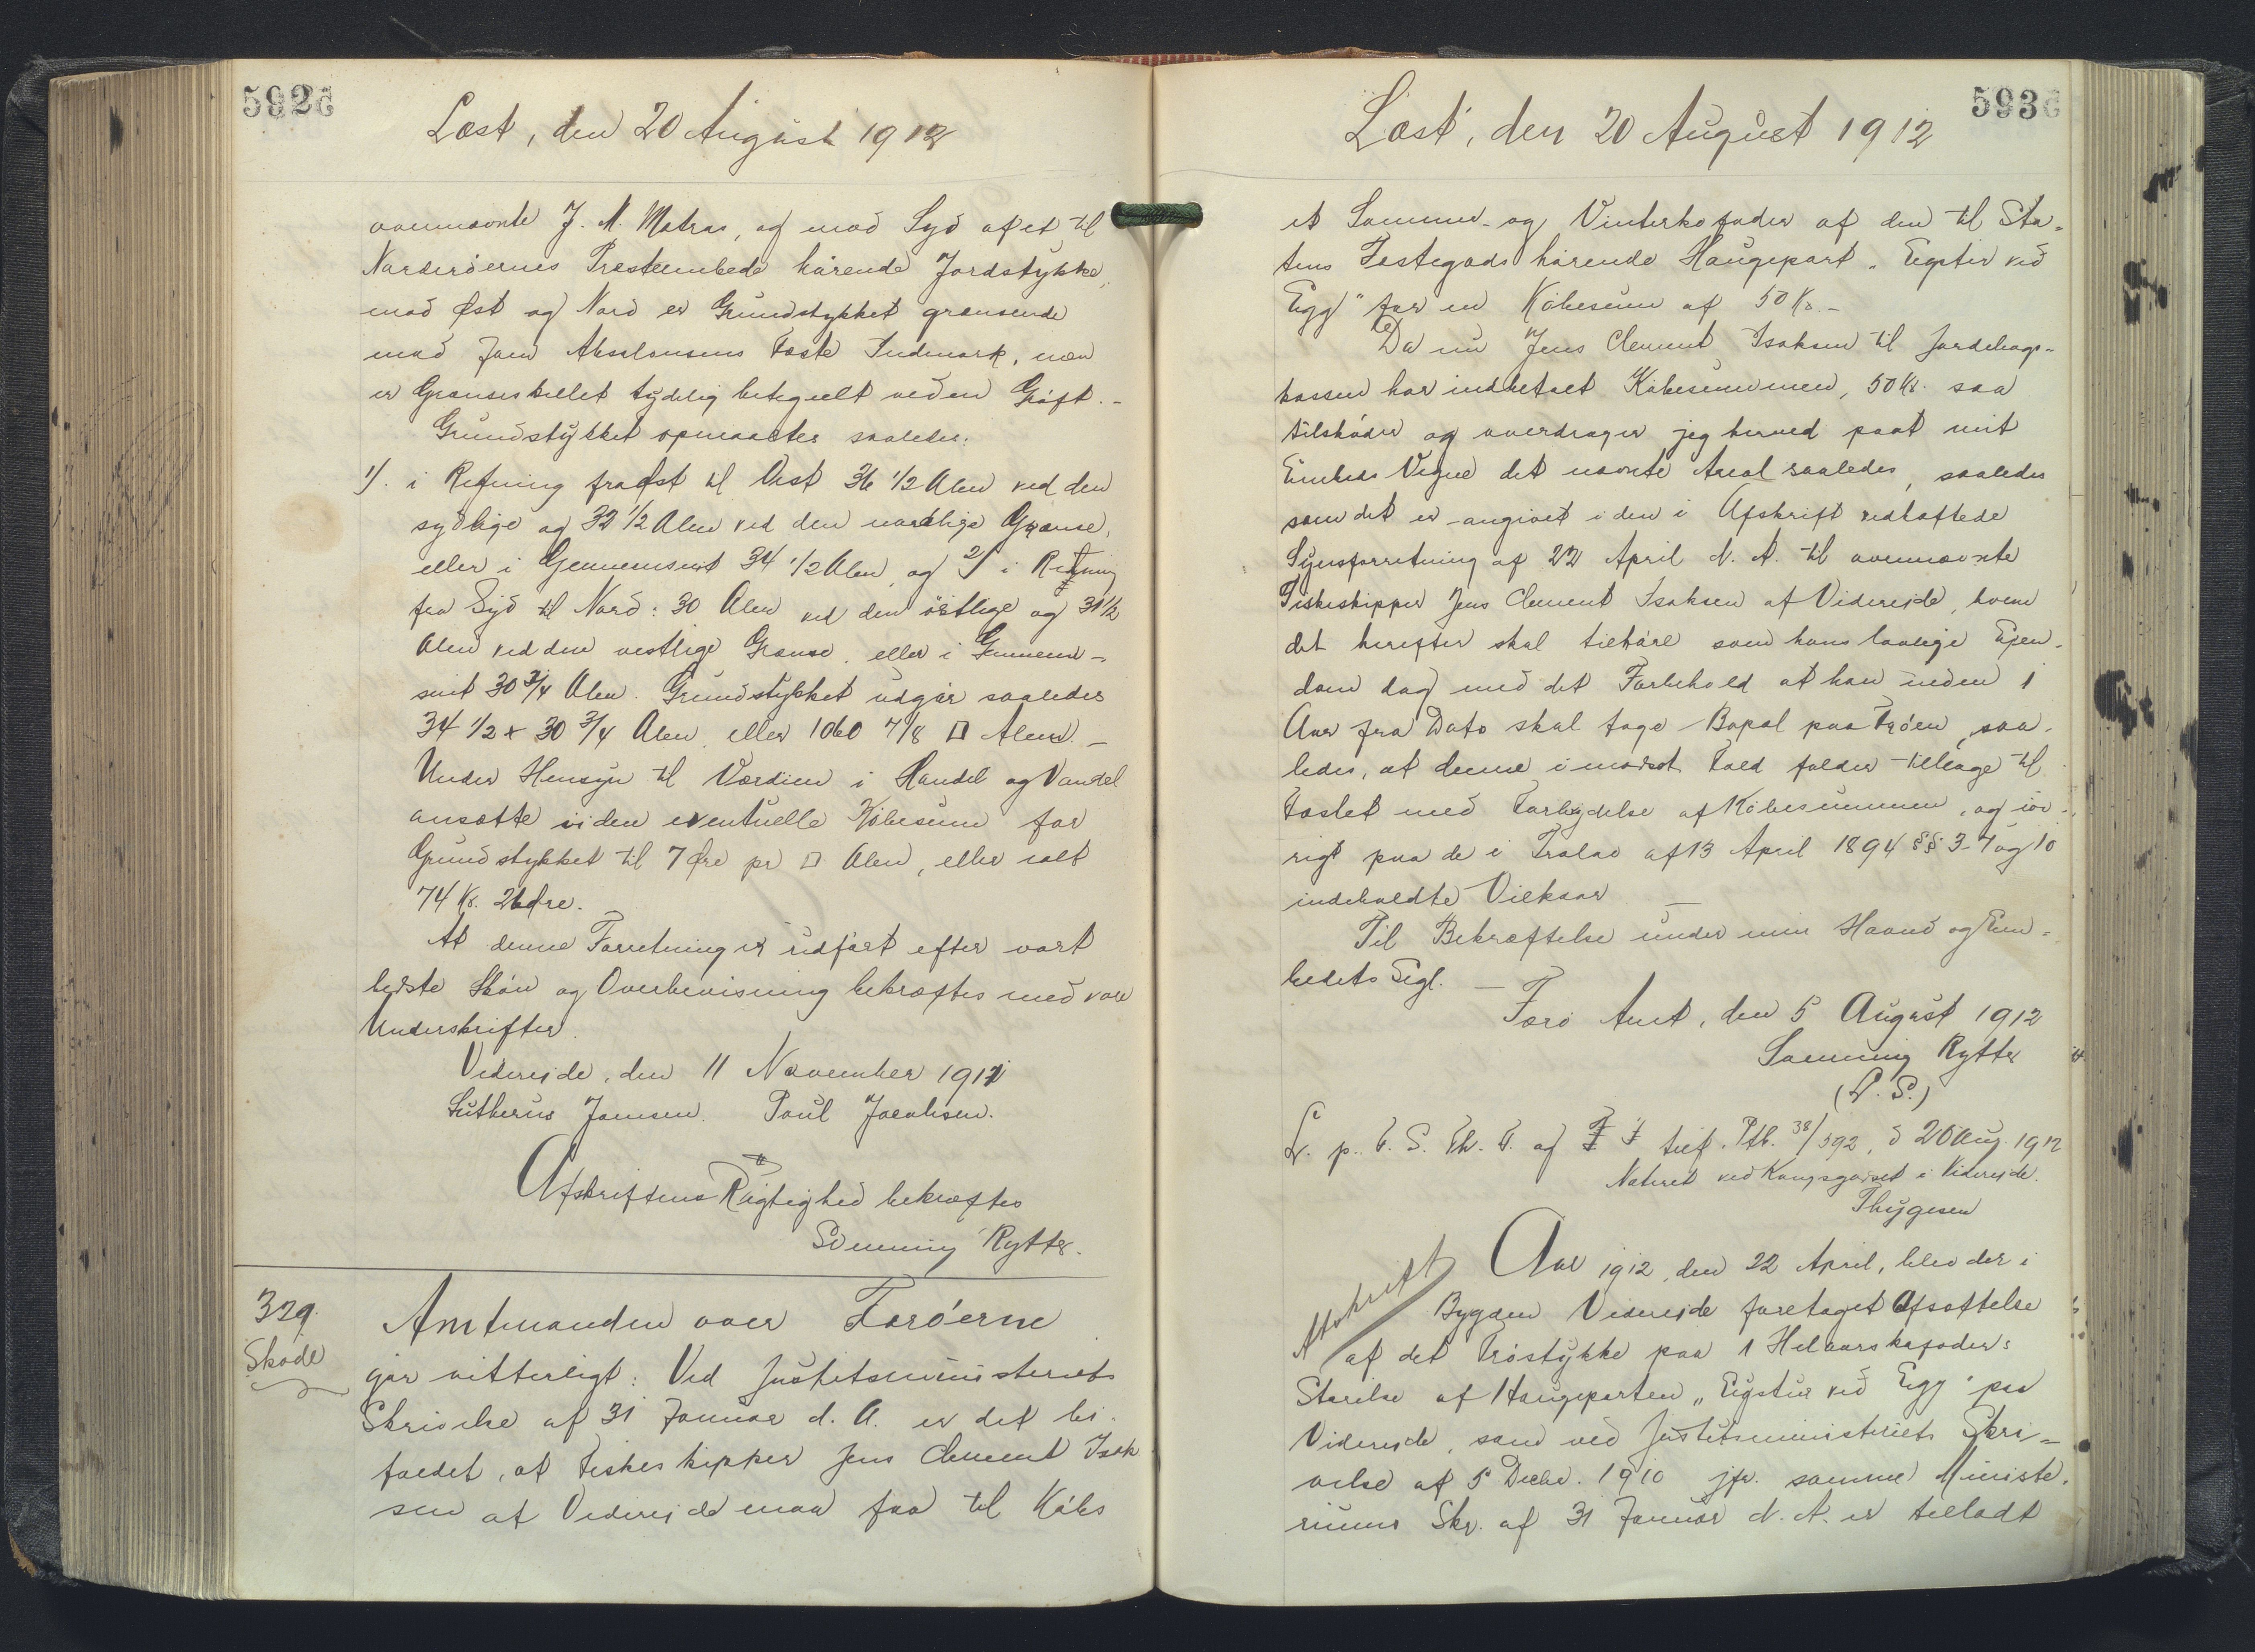 592
Læst, den 20 August 1912
ovennævnte J. M. Matras, og mod Syd af et til
Norderøernes Præsteembede hørende Jordstykke,
mod Øst og Nord er Grundstykket grænsende
mod Joen Absalonsens Fæste Indmark, men
er Grænseskellet tydelig betegnelt ved en Grøft. -
Grundstykket opmaaltes saaledes:
1). i Retning fra Øst til Vest 36 1/2 Alen ved den
sydlige og 32 1/2 Alen ved den nordlige Grænse,
eller i Gennemsnit 34 1/2 Alen, og 2) i Retning
fra Syd til Nord: 30 Alen ved den østlige og 31 1/2
Alen ved den vestlige Grænse, eller i Gennem-
snit 30 3/4 Alen. Grundstykket udgør saaledes
34 1/2 x 30 3/4 Alen, eller 1060 7/8 □ Alen. -
Under Hensyn til Værdien i Handel og Vandel
ansætte vi den eventuelle Købesum for
Grundstykket til 7 Øre pr □ Alen, eller ialt
74 Kr. 26 Øre.
At denne Forretning er udført efter vort
bedste Skøn og Overbevisning bekræftes med vore
Underskrifter.
Viderejde, den 11 November 1911
Lutherus Joensen. Poul Jacobsen.
Afskriftens Rigtighed bekræftes
Svenning Rytter.
329.
Skøde
Amtmanden over Færøerne
gør vitterligt: Ved Justitsministeriets
Skrivelse af 31 Januar d. A. er det bi-
faldet, at Fiskeskipper Jens Clement Isak
sen af Viderejde maa faa til Købs
593
Læst, den 20 August 1912
et Sommer- og Vinterkofoder af den til Sta-
tens Fæstegods hørende Haugepart "Eystur ved
Egg" for en Købesum af 50 Kr. -
Da nu Jens Clement Isaksen til Jordebogs-
kassen har indbetalt Købesummen, 50 Kr. saa
tilskøder og overdrager jeg herved paa mit
Embeds Vegne det nævnte Areal saaledes, saaledes
som det er angivet i den i Afskrift vedhæftede
Synsforretning af 22 April d. A. til ovennævnte
Fiskeskipper Jens Clement Isaksen af Viderejde, hvem
det herefter skal tilhøre som hans lovlige Ejen-
dom dog med det Forbehold at han inden 1
Aar fra Dato skal tage Bopæl paa Trøen, saa-
ledes, at denne i modsat Fald falder tilbage til
Fæstet med Forbrydelse af Købesummen, og iøv-
rigt paa de i Lov af 13 April 1894 §§ 3-7 og 10
indeholdte Vilkaar. -
Til Bekræftelse under min Haand og Em-
bedets Segl. -
Færø Amt, den 5 August 1912
Svenning Rytter
(L. S.)
L. p. F. S. Th. F. og tilf. Ptb. 38/592, d 20 Aug. 1912
Noteret ved Kongsgodset i Viderejde.
Thygesen
Afskrift
Aar 1912, den 22 April, blev der i
Bygden Viderejde foretaget Afsættelse
af det Trøstykke paa 1 Helaarskofoders
Størrelse af Haugeparten "Eystur við Egg" paa
Viderejde, som ved Justitsministeriets Skri-
velse af 5 Decbr. 1910 jfr. samme Ministe-
riums Skr. af 31 Januar d. A. er tilladt